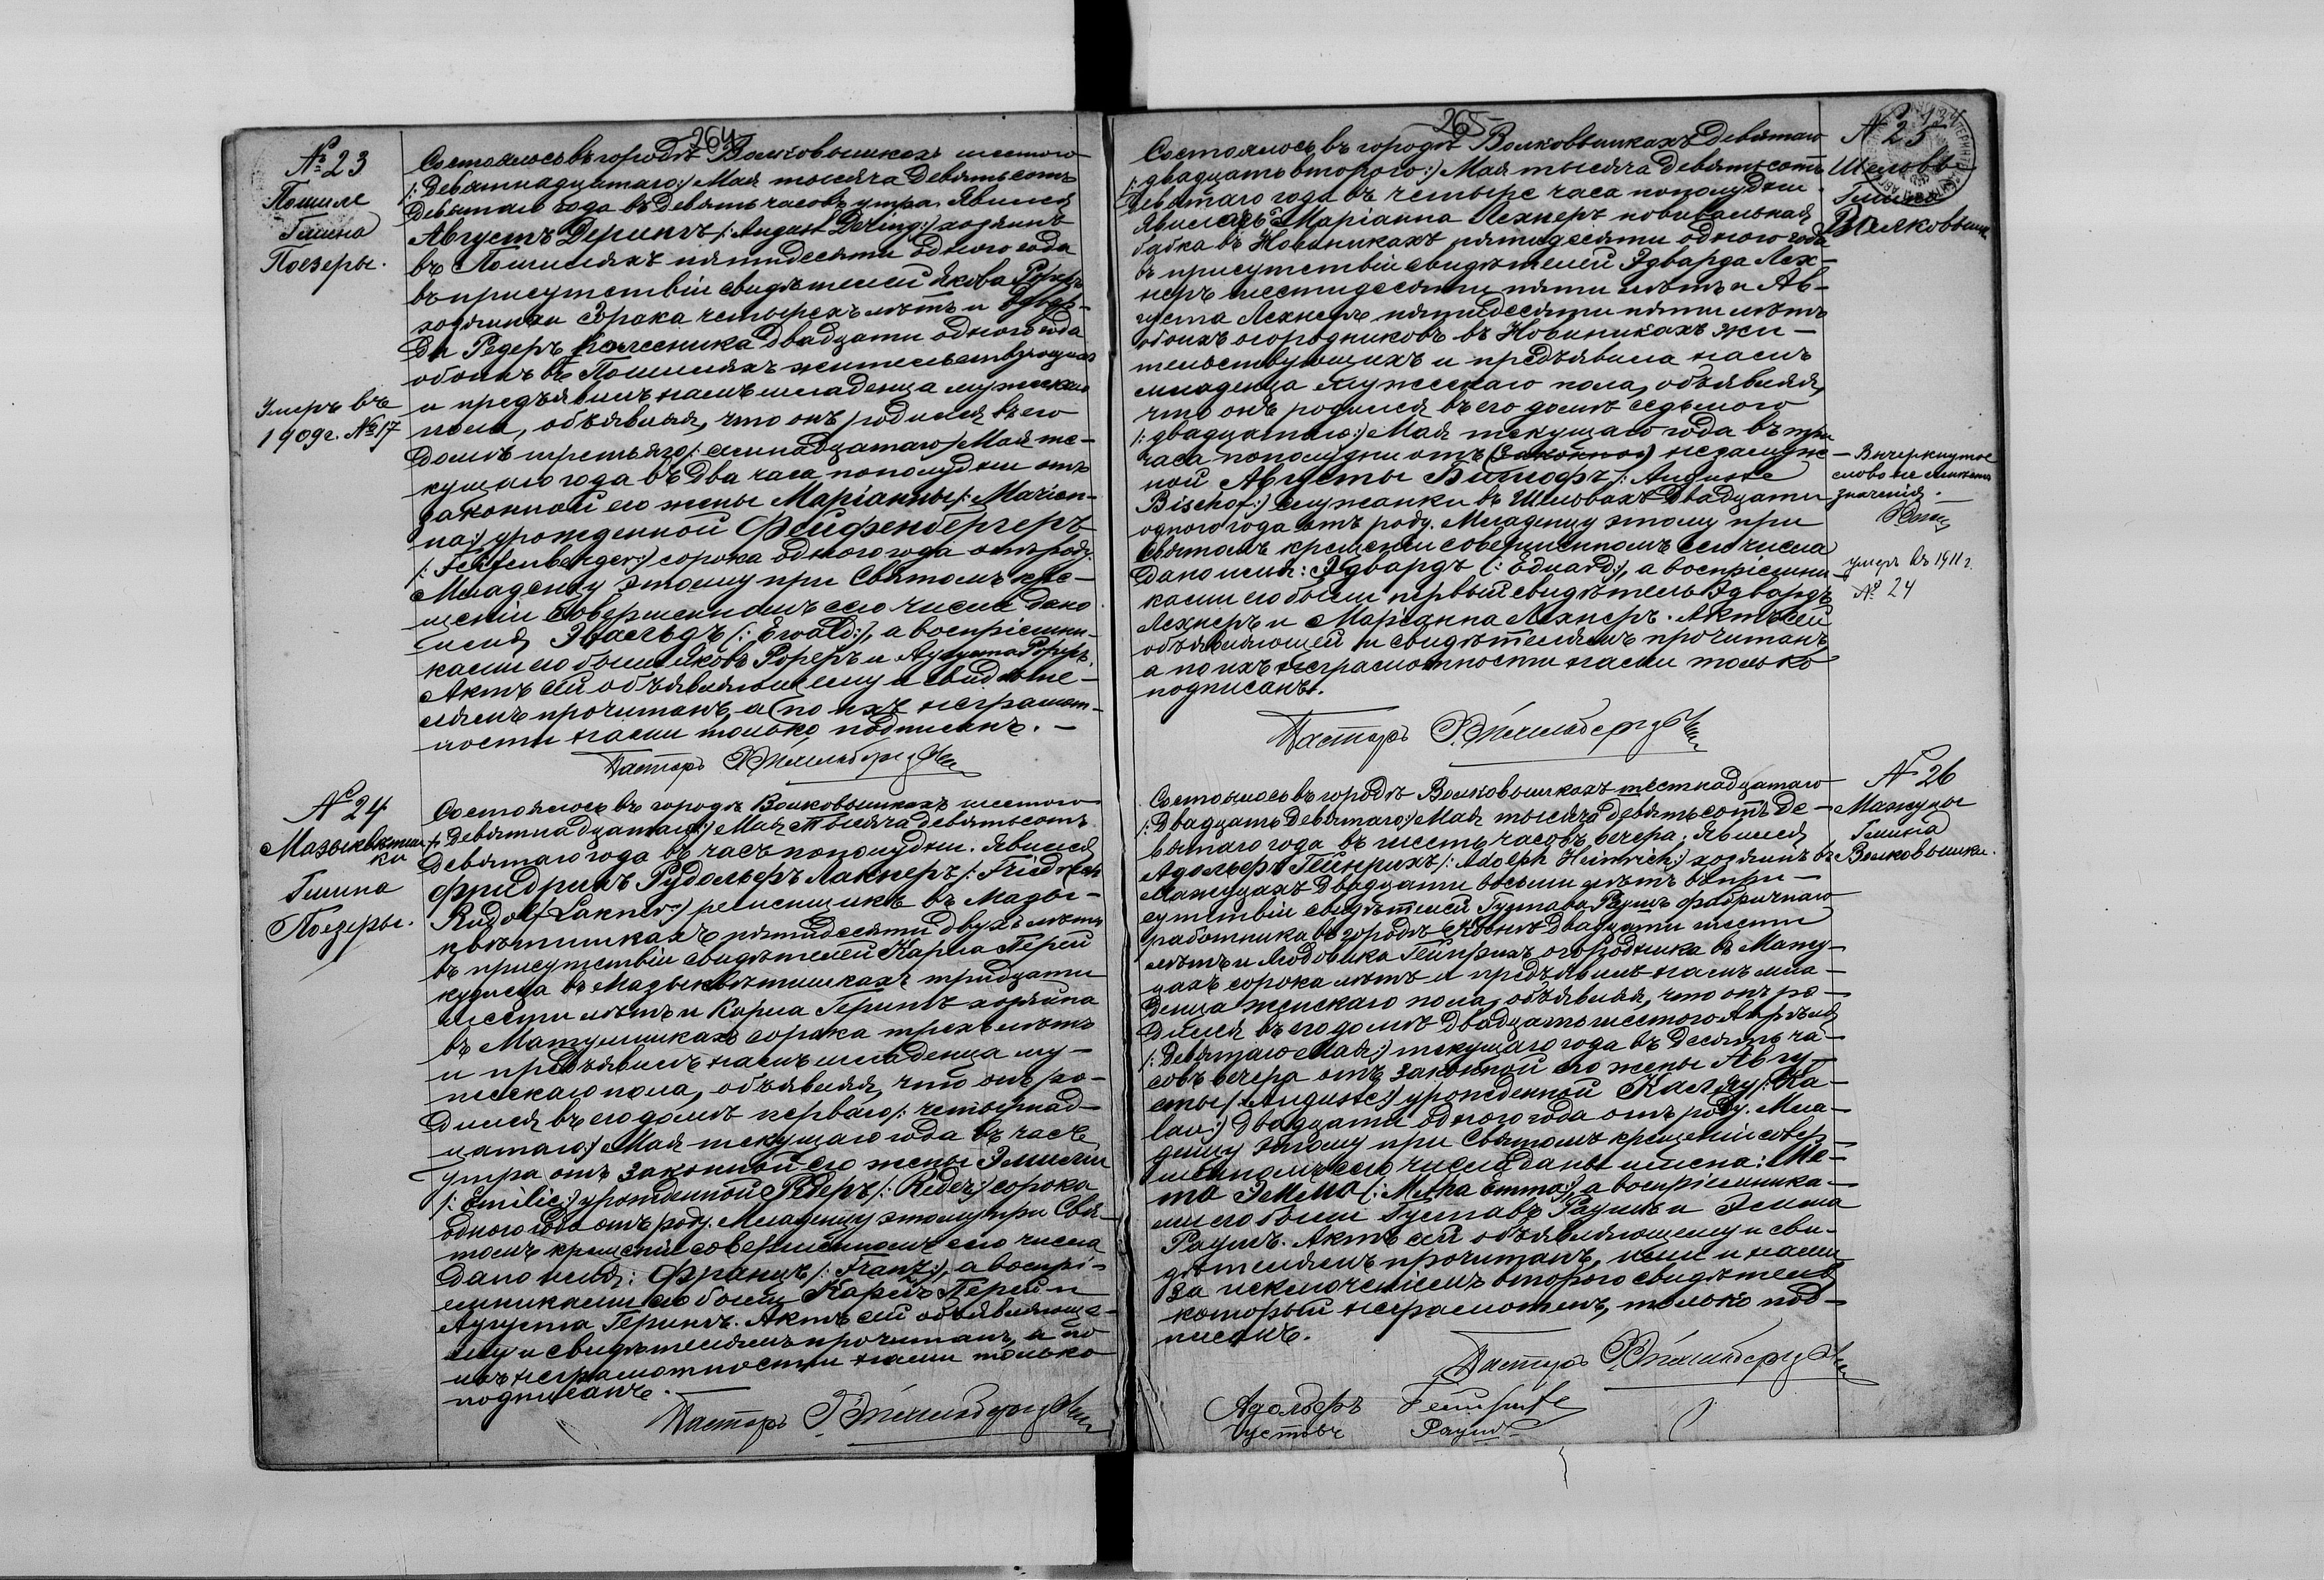 264
№ 23
Пошиле
Гмина
Поезеры.
Умеръ въ
1909г. №17
Состоялось въ городѣ Волковышкахъ шестого
/: девятнадцатаго:/ Мая тысяча девятьсотъ
девятаго года въ девять часовъ утра. Явился
Августъ Дерингъ /: August Dering:/ хозяинъ
въ Пошиляхъ пятидесяти одного года
въ присутствіи свидѣтелей Якова Рореръ
хозяина сорока четырехъ лѣтъ и
да Редеръ двадцати одного года
обоихъ въ Пошиляхъ жительствующихъ
и предъявилъ намъ младенца мужескаго
пола, объявляя, что онъ родился въ его
домѣ третьяго /: шестнадцатаго:/ Мая те-
кущаго года въ два часа пополудни отъ
законной его жены Маріанны /: Marian-
na:/ урожденной Фейфенбергеръ
/: Feifenberger:/ сорока одного года отъ роду.
Младенцу этому при Святомъ кре-
щеніи совершенномъ сего числа дано
имя Эвальдъ /: Ewald:/, а воспріемни-
ками его были Яковъ Рореръ и Августа Рореръ.
Актъ сей объявляющему и свидѣте-
лямъ прочитанъ, а по ихъ неграмот-
ности нами только подписанъ. —
Пасторъ
№ 24
Мазыкветиш-
ки
Гмина
Поезеры.
Состоялось въ городѣ Волковышкахъ шестого
/: девятнадцатаго:/ Мая тысяча девятьсотъ
девятаго года въ часъ пополудни. Явился
Фридрихъ Рудольфъ Лакнеръ /: Friedrich
Rudolf Lakner:/ въ Мазы-
кветишкахъ пятидесяти двухъ лѣтъ
въ присутствіи свидѣтелей Карла Перей
кузнеца въ Мазыкветишкахъ тридцати
шести лѣтъ и Карла Герингъ хозяина
въ Матулишкахъ сорока трехъ лѣтъ
и предъявилъ намъ младенца му-
жескаго пола, объявляя, что онъ ро-
дился въ его домѣ перваго /: четырнад-
цатаго:/ Мая текущаго года въ часъ
утра отъ законной его жены Эмиліи
/: Emilie:/ урожденной Редеръ /: Reder:/ сорока
одного года отъ роду. Младенцу этому при Свя-
томъ крещеніи совершенномъ сего числа
дано имя: Францъ /: Franz:/, а воспрі-
емниками его были Карлъ Перей и
Августа Герингъ. Актъ сей объявляюще-
му и свидѣтелямъ прочитанъ, а по
ихъ неграмотности нами только
подписанъ.
Пасторъ
265
№ 25
Шеловы
Гмина
Волковышки
Состоялось въ городѣ Волковышкахъ девятаго
/: двадцать второго:/ Мая тысяча девятьсотъ
девятаго года въ четыре часа пополудни.
Явилась Маріанна Лехнеръ повивальная
бабка въ Новиникахъ пятидесяти одного года
въ присутствіи свидѣтелей Эдварда Лех-
неръ шестидесяти пяти лѣтъ и Ав-
густа Лехнеръ пятидесяти пяти лѣтъ
обоихъ огородниковъ въ Новиникахъ жи-
тельствующихъ и предъявила намъ
младенца мужескаго пола, объявляя,
что онъ родился въ его домѣ седьмого
/: двадцатаго:/ Мая текущаго года въ три
часа пополудни отъ (законной) незамуж-
ной Августы Бишофъ /: Auguste
Bischof:/ служанки въ Шеловахъ двадцати
одного года отъ роду. Младенцу этому при
Святомъ крещеніи совершенномъ сего числа
дано имя: Эдвардъ /: Eduard:/, а воспріемни-
ками его были первый свидѣтель Эдвардъ
Лехнеръ и Маріанна Лехнеръ. Актъ сей
объявляющей и свидѣтелямъ прочитанъ,
а по ихъ неграмотности нами только
подписанъ.
Пасторъ
— Вычеркнутое
слово не имѣетъ
значенія.
умеръ въ 1911 г.
№ 24
№ 26
Мажуцы
Гмина
Волковышки.
Состоялось въ городѣ Волковышкахъ шестнадцатаго
/: двадцать девятаго:/ Мая тысяча девятьсотъ де-
вятаго года въ шесть часовъ вечера. Явился
Адольфъ Гейнрихъ /: Adolph Heinrich:/ хозяинъ въ
Мажуцахъ двадцати восьми лѣтъ въ при-
сутствіи свидѣтелей Густава Раушъ фабричнаго
работника въ городѣ Ковнѣ двадцати шести
лѣтъ и Людовика Гейнрихъ огородника въ Мажу-
цахъ сорока лѣтъ и предъявилъ намъ мла-
денца женскаго пола, объявляя, что онъ ро-
дился въ его домѣ двадцать шестого Апрѣля
/: девятаго Мая:/ текущаго года въ десять ча-
совъ вечера отъ законной его жены Авгу-
сты /: Auguste:/ урожденной Каслау /: Ka-
lau:/ двадцати одного года отъ роду. Мла-
денцу этому при Святомъ крещеніи совер-
шенномъ сего числа даны имена: Ме-
та Эмма /: Meta Emma:/, а воспріемника-
ми его были Густавъ Раушъ и Эмма
Раушъ. Актъ сей объявляющему и сви-
дѣтелямъ прочитанъ, ими и нами
за исключеніемъ второго свидѣтеля
который неграмотенъ, только под-
писанъ.
Пасторъ
Адольфъ Гейнрихъ
Густавъ Раушъ